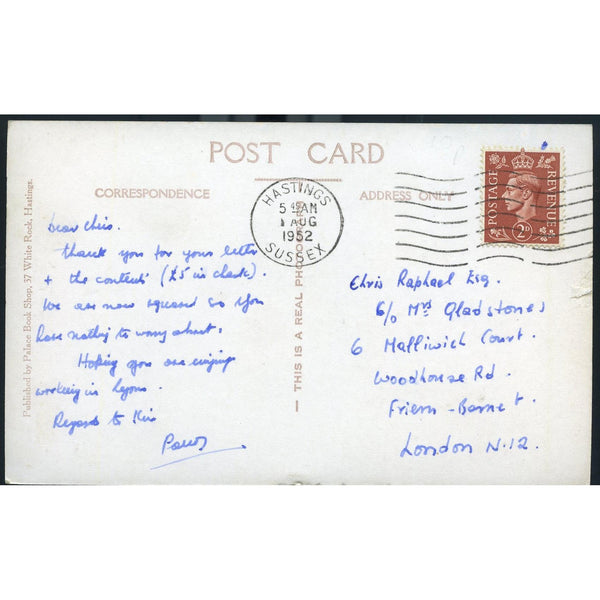 POST CARD
CORRESPONDENCE
ADDRESS ONLY
HASTINGS
5 15AM
1 AUG
1952
SUSSEX
POSTAGE
REVENUE
2D
Published by Palace Book Shop, 37 White Rock, Hastings.
— THIS IS A REAL PHOTOGRAPH —
Dear Chris.
Thank you for your letter
+ the contents (£5 in cheque).
We are now squared so you
have nothing to worry about.
Hoping you are enjoying
working in Lyons.
Regards to
Chris Raphael Esq.
c/o Mrs Gladstones
6 Malliwich Court.
Woodhouse Rd.
Friern-Barnet.
London N.12.